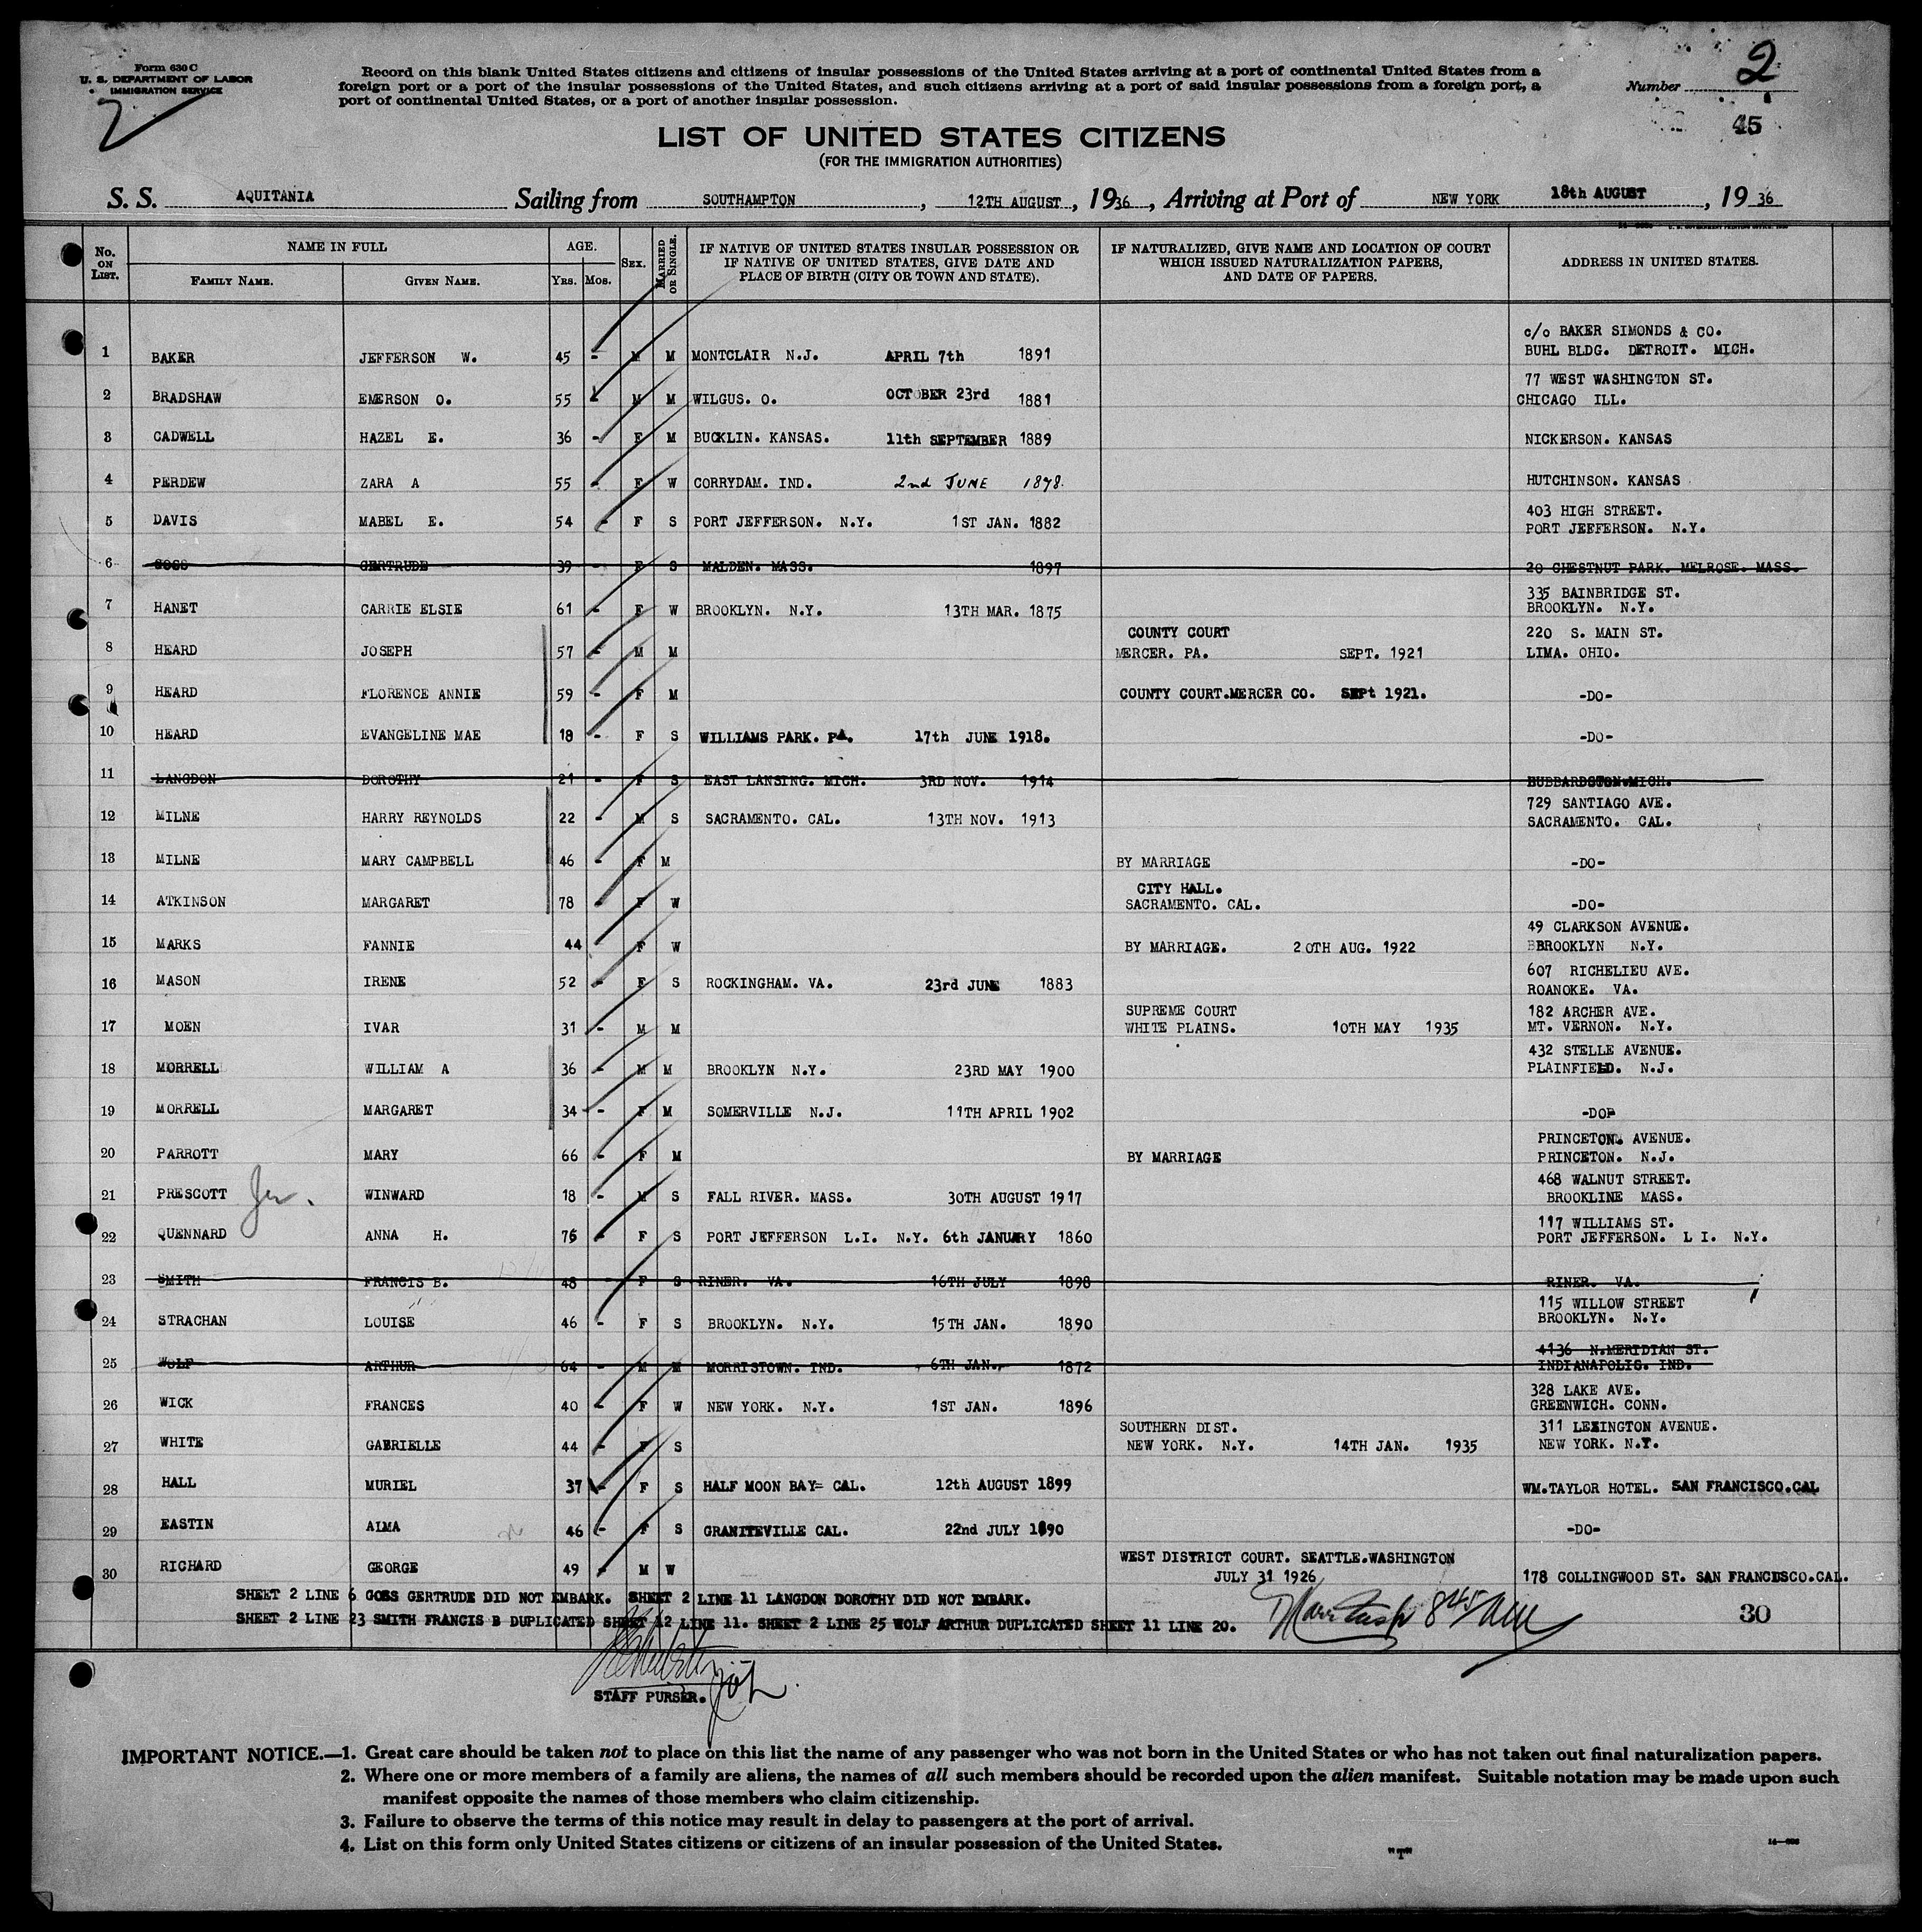 Form 630 C
U. S. DEPARTMENT OF LABOR
IMMIGRATION SERVICE
2
Record on this blank United States citizens and citizens of insular possessions of the United States arriving at a port of continental United States from a
foreign port or a port of the insular possessions of the United States, and such citizens arriving at a port of said insular possessions from a foreign port, a
port of continental United States, or a port of another insular possession.
Number 2
45
LIST OF UNITED STATES CITIZENS
(FOR THE IMMIGRATION AUTHORITIES)
S. S. AQUITANIA Sailing from SOUTHAMPTON, 12TH AUGUST, 1936, Arriving at Port of NEW YORK 18th AUGUST, 1936
No. ON LIST. NAME IN FULL FAMILY NAME. GIVEN NAME. AGE. YRS. MOS. SEX. MARRIED OR SINGLE. IF NATIVE OF UNITED STATES INSULAR POSSESSION OR IF NATIVE OF UNITED STATES, GIVE DATE AND PLACE OF BIRTH (CITY OR TOWN AND STATE). IF NATURALIZED, GIVE NAME AND LOCATION OF COURT WHICH ISSUED NATURALIZATION PAPERS, AND DATE OF PAPERS. ADDRESS IN UNITED STATES.
1 BAKER JEFFERSON W. 45 - M M MONTCLAIR N.J. APRIL 7th 1891 c/o BAKER SIMONDS & CO. BUHL BLDG. DETROIT. MICH.
2 BRADSHAW EMERSON O. 55 - M M WILGUS. O. OCTOBER 23rd 1881 77 WEST WASHINGTON ST. CHICAGO ILL.
3 CADWELL HAZEL E. 36 - F M BUCKLIN. KANSAS. 11th SEPTEMBER 1889 NICKERSON. KANSAS
4 PERDEW ZARA A 55 - F W CORRYDAM. IND. 2nd JUNE 1878. HUTCHINSON. KANSAS
5 DAVIS MABEL E. 54 - F S PORT JEFFERSON. N.Y. 1ST JAN. 1882 403 HIGH STREET. PORT JEFFERSON. N.Y.
6 GOSS GERTRUDE 39 - F S MALDEN. MASS. 1897 20 CHESTNUT PARK. MELROSE. MASS.
7 HANET CARRIE ELSIE 61 - F W BROOKLYN. N.Y. 13TH MAR. 1875 335 BAINBRIDGE ST. BROOKLYN. N.Y.
8 HEARD JOSEPH 57 - M M COUNTY COURT MERCER. PA. SEPT. 1921 220 S. MAIN ST. LIMA. OHIO.
9 HEARD FLORENCE ANNIE 59 - F M COUNTY COURT.MERCER CO. SEPt 1921. -DO-
10 HEARD EVANGELINE MAE 18 - F S WILLIAMS PARK. PA. 17th JUNE 1918. -DO-
11 LANGDON DOROTHY 21 - F S EAST LANSING. MICH. 3RD NOV. 1914 HUBBARDSTON.MICH.
12 MILNE HARRY REYNOLDS 22 - M S SACRAMENTO. CAL. 13TH NOV. 1913 729 SANTIAGO AVE. SACRAMENTO. CAL.
13 MILNE MARY CAMPBELL 46 - F M BY MARRIAGE -DO-
14 ATKINSON MARGARET 78 - F W CITY HALL. SACRAMENTO. CAL. -DO-
15 MARKS FANNIE 44 F W BY MARRIAGE. 20TH AUG. 1922 49 CLARKSON AVENUE. BBROOKLYN N.Y.
16 MASON IRENE 52 - F S ROCKINGHAM. VA. 23rd JUNE 1883 607 RICHELIEU AVE. ROANOKE. VA.
17 MOEN IVAR 31 - M M SUPREME COURT WHITE PLAINS. 10TH MAY 1935 182 ARCHER AVE. MT. VERNON. N.Y.
18 MORRELL WILLIAM A 36 - M M BROOKLYN N.Y. 23RD MAY 1900 432 STELLE AVENUE. PLAINFIELD. N.J.
19 MORRELL MARGARET 34 - F M SOMERVILLE N.J. 11TH APRIL 1902 -DOP
20 PARROTT MARY 66 - F M BY MARRIAGE PRINCETON. AVENUE. PRINCETON. N.J.
21 PRESCOTT Jr. WINWARD 18 - M S FALL RIVER. MASS. 30TH AUGUST 1917 468 WALNUT STREET. BROOKLINE MASS.
22 QUENNARD ANNA H. 76 - F S PORT JEFFERSON L.I. N.Y. 6th JANUARY 1860 117 WILLIAMS ST. PORT JEFFERSON. L I. N.Y.
23 SMITH FRANCIS B. 48 - F S RINER. VA. 16TH JULY 1898 RINER. VA.
24 STRACHAN LOUISE 46 - F S BROOKLYN. N.Y. 15TH JAN. 1890 115 WILLOW STREET BROOKLYN. N.Y.
25 WOLF ARTHUR 64 - M M MORRISTOWN. IND. 6TH JAN. 1872 4136 N.MERIDIAN ST. INDIANAPOLIS. IND.
26 WICK FRANCES 40 - F W NEW YORK. N.Y. 1ST JAN. 1896 328 LAKE AVE. GREENWICH. CONN.
27 WHITE GABRIELLE 44 - F S SOUTHERN DIST. NEW YORK. N.Y. 14TH JAN. 1935 311 LEXINGTON AVENUE. NEW YORK. N.Y.
28 HALL MURIEL 37 - F S HALF MOON BAY= CAL. 12th AUGUST 1899 WM.TAYLOR HOTEL. SAN FRANCISCO.CAL
29 EASTIN ALMA 46 - F S GRANITEVILLE CAL. 22nd JULY 1890 -DO-
30 RICHARD GEORGE 49 - M W WEST DISTRICT COURT. SEATTLE.WASHINGTON JULY 31 1926 178 COLLINGWOOD ST. SAN FRANCISCO.CAL.
SHEET 2 LINE 6 GOSS GERTRUDE DID NOT EMBARK. SHEET 2 LINE 11 LANGDON DOROTHY DID NOT EMBARK.
SHEET 2 LINE 23 SMITH FRANCIS B DUPLICATED SHEET 12 LINE 11. SHEET 2 LINE 25 WOLF ARTHUR DUPLICATED SHEET 11 LINE 20.
845 AM
30
STAFF PURSER.
IMPORTANT NOTICE.—1. Great care should be taken not to place on this list the name of any passenger who was not born in the United States or who has not taken out final naturalization papers.
2. Where one or more members of a family are aliens, the names of all such members should be recorded upon the alien manifest. Suitable notation may be made upon such
manifest opposite the names of those members who claim citizenship.
3. Failure to observe the terms of this notice may result in delay to passengers at the port of arrival.
4. List on this form only United States citizens or citizens of an insular possession of the United States.
"T"